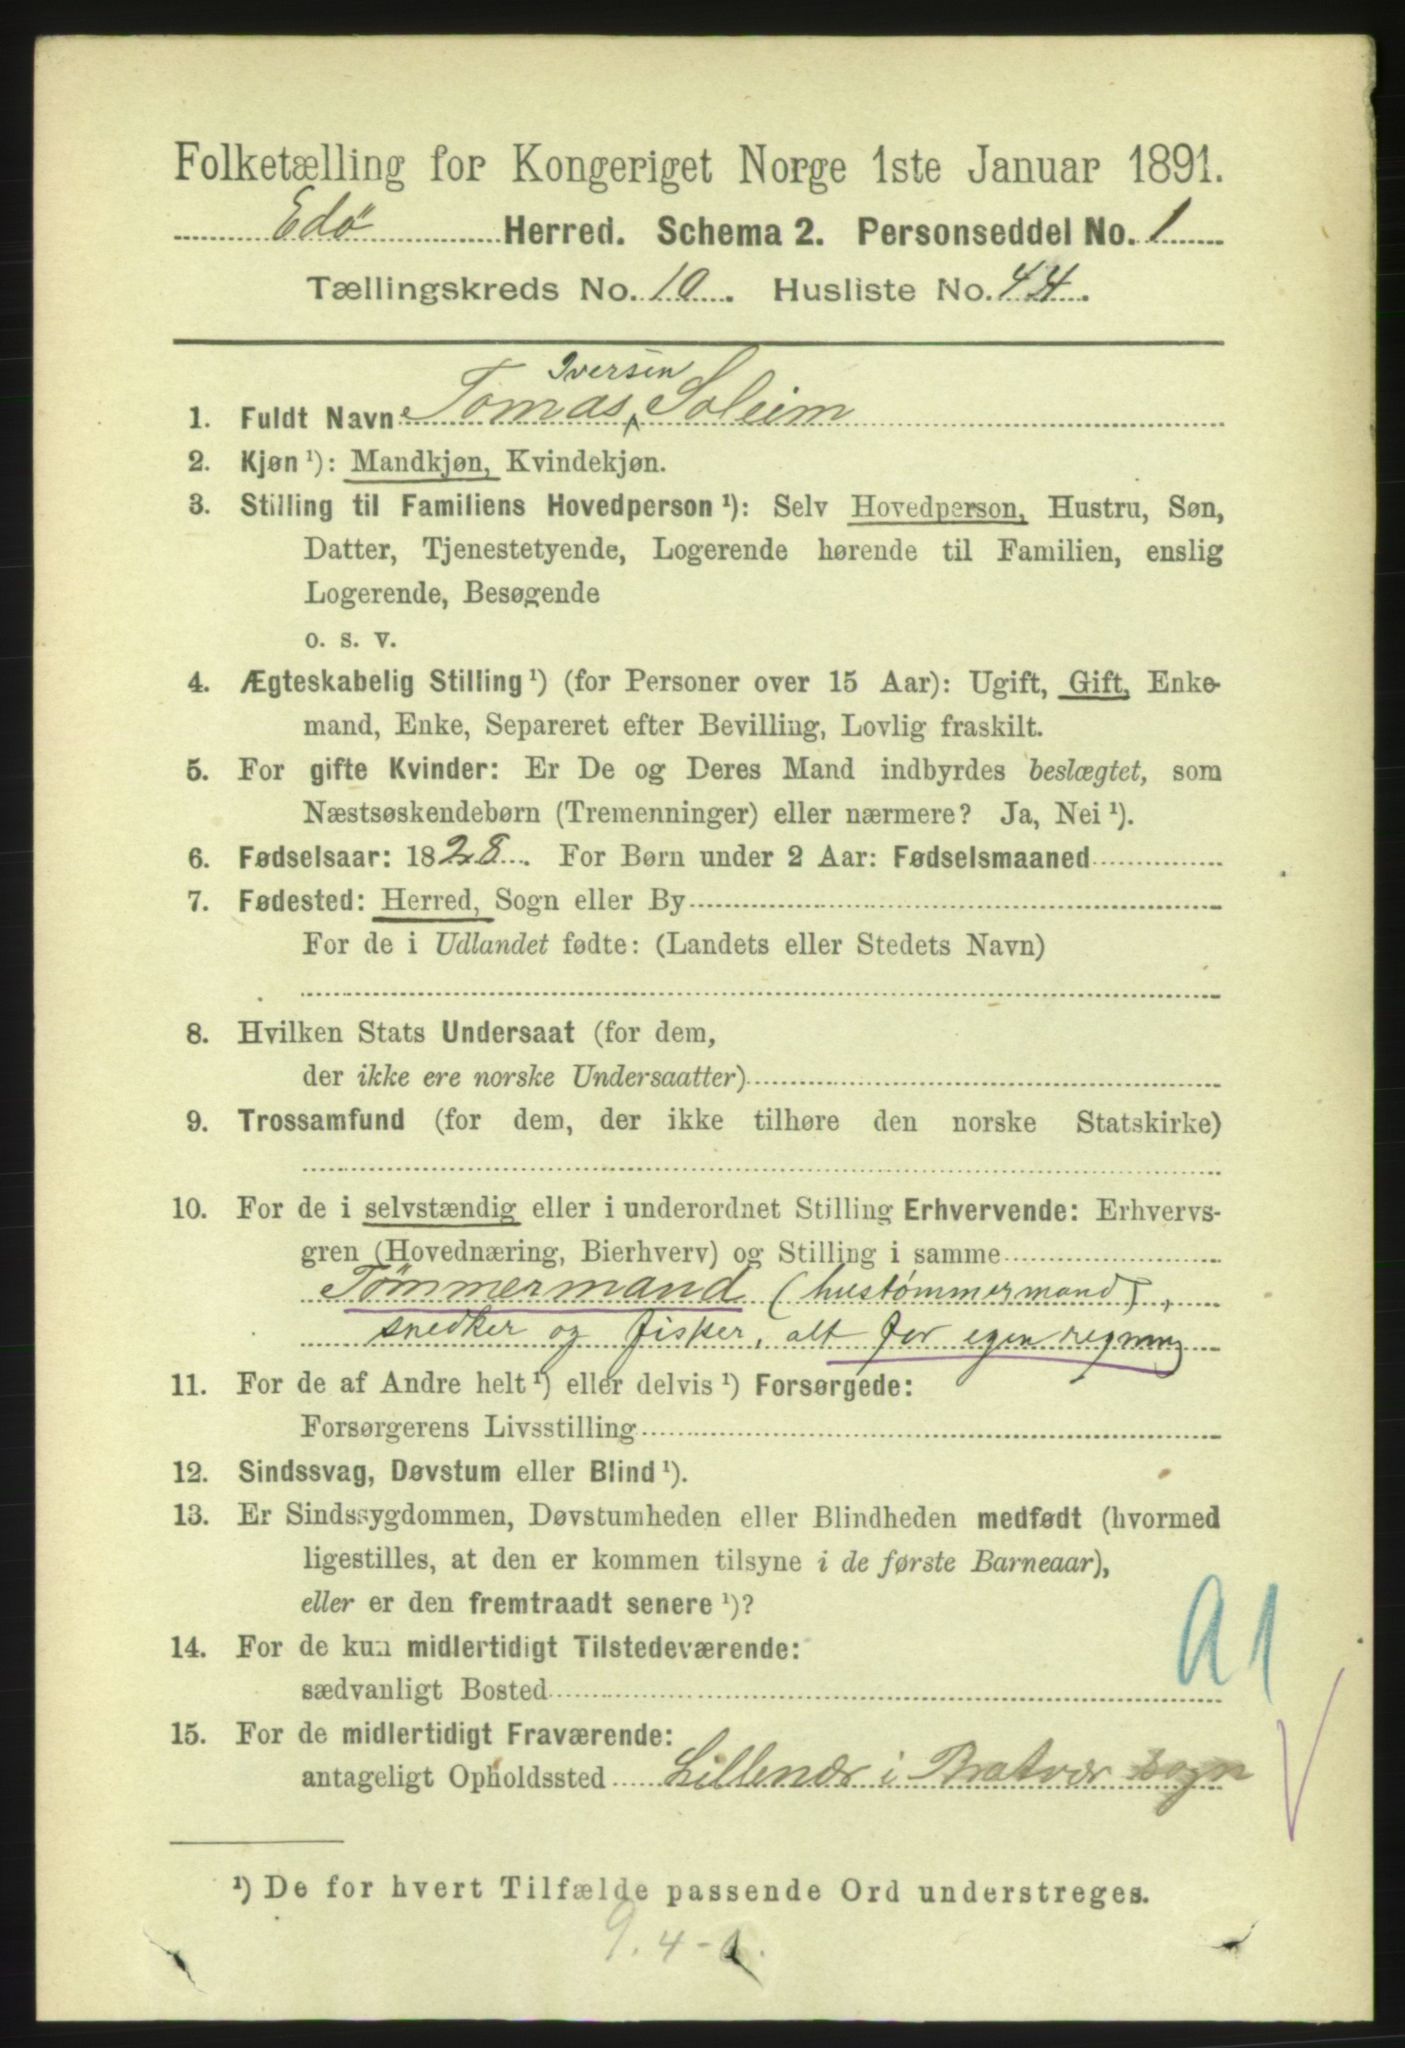 Folketælling for Kongeriget Norge 1ste Januar 1891.
Edø Herred. Schema 2. Personseddel No. 1
Tællingskreds No. 10. Husliste No. 44.
Iversen
1. Fuldt Navn Tomas ‸ Soleim
2. Kjøn ¹): Mandkjøn, Kvindekjøn.
3. Stilling til Familiens Hovedperson ¹): Selv Hovedperson, Hustru, Søn,
Datter, Tjenestetyende, Logerende hørende til Familien, enslig
Logerende, Besøgende
o. s. v.
4. Ægteskabelig Stilling ¹) (for Personer over 15 Aar): Ugift, Gift, Enke-
mand, Enke, Separeret efter Bevilling, Lovlig fraskilt.
5. For gifte Kvinder: Er De og Deres Mand indbyrdes beslægtet, som
Næstsøskendebørn (Tremenninger) eller nærmere? Ja, Nei ¹).
6. Fødselsaar: 1828. For Børn under 2 Aar: Fødselsmaaned
7. Fødested: Herred, Sogn eller By
For de i Udlandet fødte: (Landets eller Stedets Navn)
8. Hvilken Stats Undersaat (for dem,
der ikke ere norske Undersaatter)
9. Trossamfund (for dem, der ikke tilhøre den norske Statskirke)
10. For de i selvstændig eller i underordnet Stilling Erhvervende: Erhvervs-
gren (Hovednæring, Bierhverv) og Stilling i samme
Tømmermand (hustømmermand),
snedker og fisker, alt for egen regning
11. For de af Andre helt ¹) eller delvis ¹) Forsørgede:
Forsørgerens Livsstilling
12. Sindssvag, Døvstum eller Blind ¹).
13. Er Sindssygdommen, Døvstumheden eller Blindheden medfødt (hvormed
ligestilles, at den er kommen tilsyne i de første Barneaar),
eller er den fremtraadt senere ¹)?
14. For de kun midlertidigt Tilstedeværende:
sædvanligt Bosted
A1
15. For de midlertidigt Fraværende:
antageligt Opholdssted Lillenær i Bratvær sogn
¹) De for hvert Tilfælde passende Ord understreges.
9. 4 -